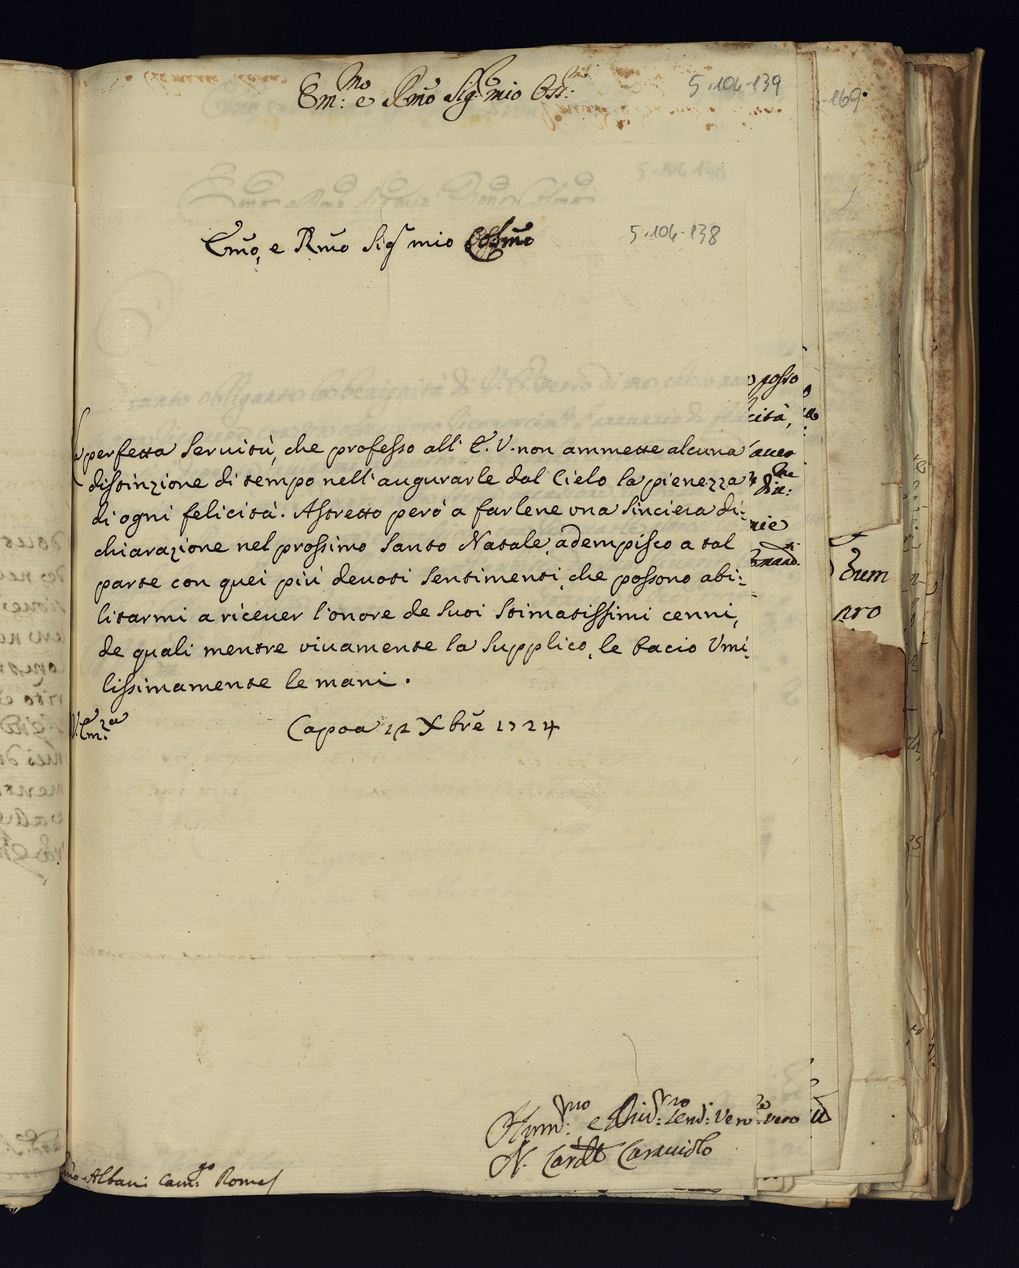 Em:mo e Rmo Sig.r mio Oss:
5·106-139
169·
5·106-140
Emo, e Rmo Sig.r mio Ossmo
5·106-138
La perfetta Servitù, che professo all' E. V. non ammette alcuna
distinzione di tempo nell'augurarle dal Cielo la pienezza
di ogni felicità. Astretto però a farlene una sinciera di:
chiarazione nel prossimo Santo Natale, adempisco a tal
parte con quei più devoti sentimenti, che possono abi:
litarmi a ricever l'onore de suoi stimatissimi cenni,
de quali mentre vivamente la supplico, le bacio Umi:
lissimamente le mani.
V. Em:za
Capoa 12 Xbre 1724
posso
cità,
dum
nro
Hum:mo e Div:mo Serd: Ver:o vero
N. Card.l Caracciolo
Albani Cam:go Roma